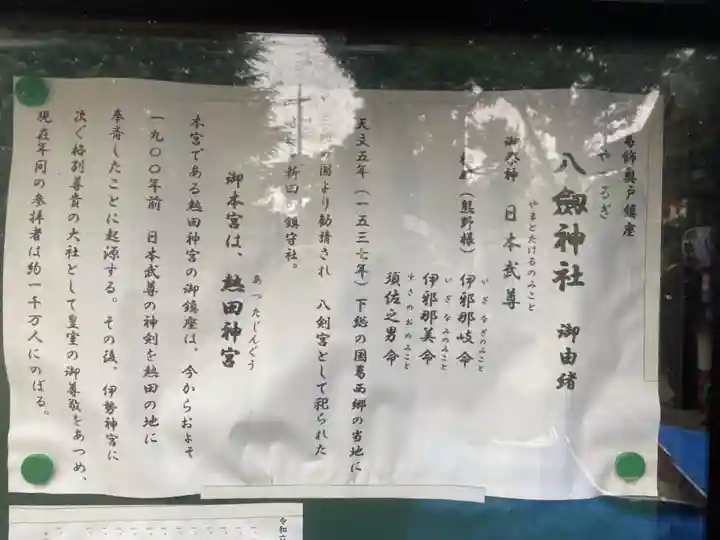 葛飾奥戸鎮座
やつるぎ
八劔神社 御由緒
やまとたけるのみこと
御祭神 日本武尊
いざなぎのみこと
(熊野様) 伊邪那岐命
いざなみのみこと
伊邪那美命
すさのおのみこと
須佐之男命
天文五年(一五三七年)下総の国葛西郷の当地に
の国より勧請され 八剣宮として祀られた
新田 鎮守社。
あつたじんぐう
御本宮は、 熱田神宮
本宮である熱田神宮の御鎮座は、今からおよそ
一九〇〇年前 日本武尊の神剣を熱田の地に
奉斎したことに起源する。その後、伊勢神宮に
次ぐ格別尊貴の大社として皇室の御尊敬をあつめ、
現在年間の参拝者は約一千万人にのぼる。
令和六